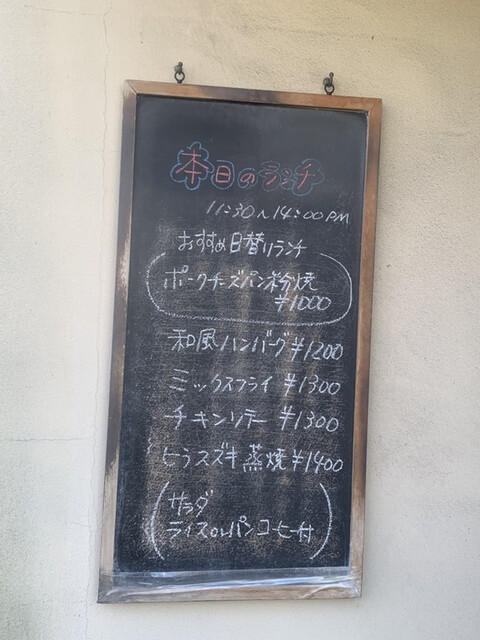 本日のランチ
11:30〜14:00PM
おすすめ日替りランチ
ポークチーズパン粉焼
¥1000
和風ハンバーグ ¥1200
ミックスフライ ¥1300
チキンソテー ¥1300
ヒラスズキ蒸焼 ¥1400
(サラダ
ライスorパン コーヒー付)